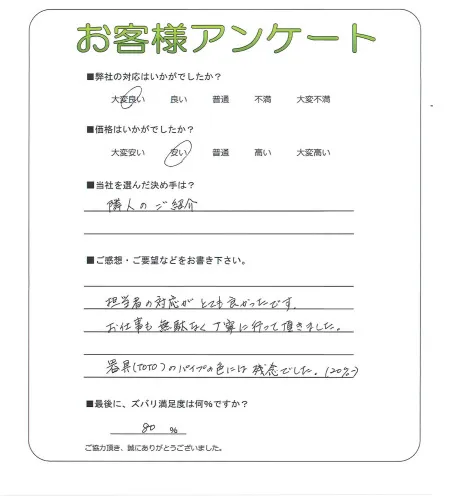 お客様アンケート
■弊社の対応はいかがでしたか？
大変良い 良い 普通 不満 大変不満
■価格はいかがでしたか？
大変安い 安い 普通 高い 大変高い
■当社を選んだ決め手は？
隣人のご紹介
■ご感想・ご要望などをお書き下さい。
担当者の対応がとても良かったです。
お仕事も無駄なく丁寧に行って頂きました。
器具(TOTO)のパイプの色には残念でした。(20%)
■最後に、ズバリ満足度は何％ですか？
80 %
ご協力頂き、誠にありがとうございました。